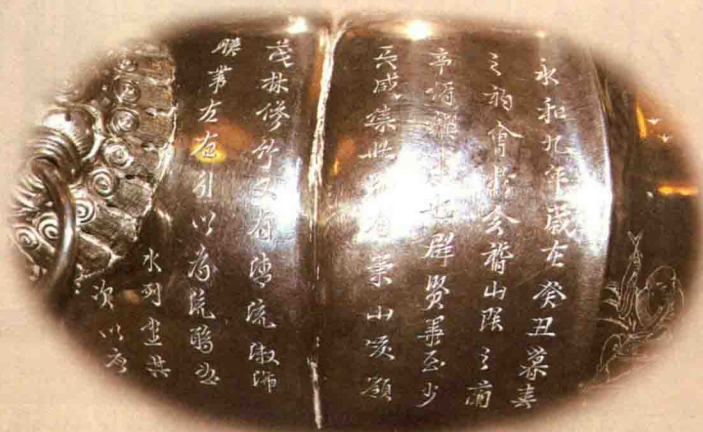 永和九年歲在癸丑暮春
之初會於会稽山陰之蘭
亭脩禊事也群賢畢至少
長咸集此地有崇山峻領
茂林修竹又有清流激湍
暎帶左右引以為流觴曲
水列坐其
次以